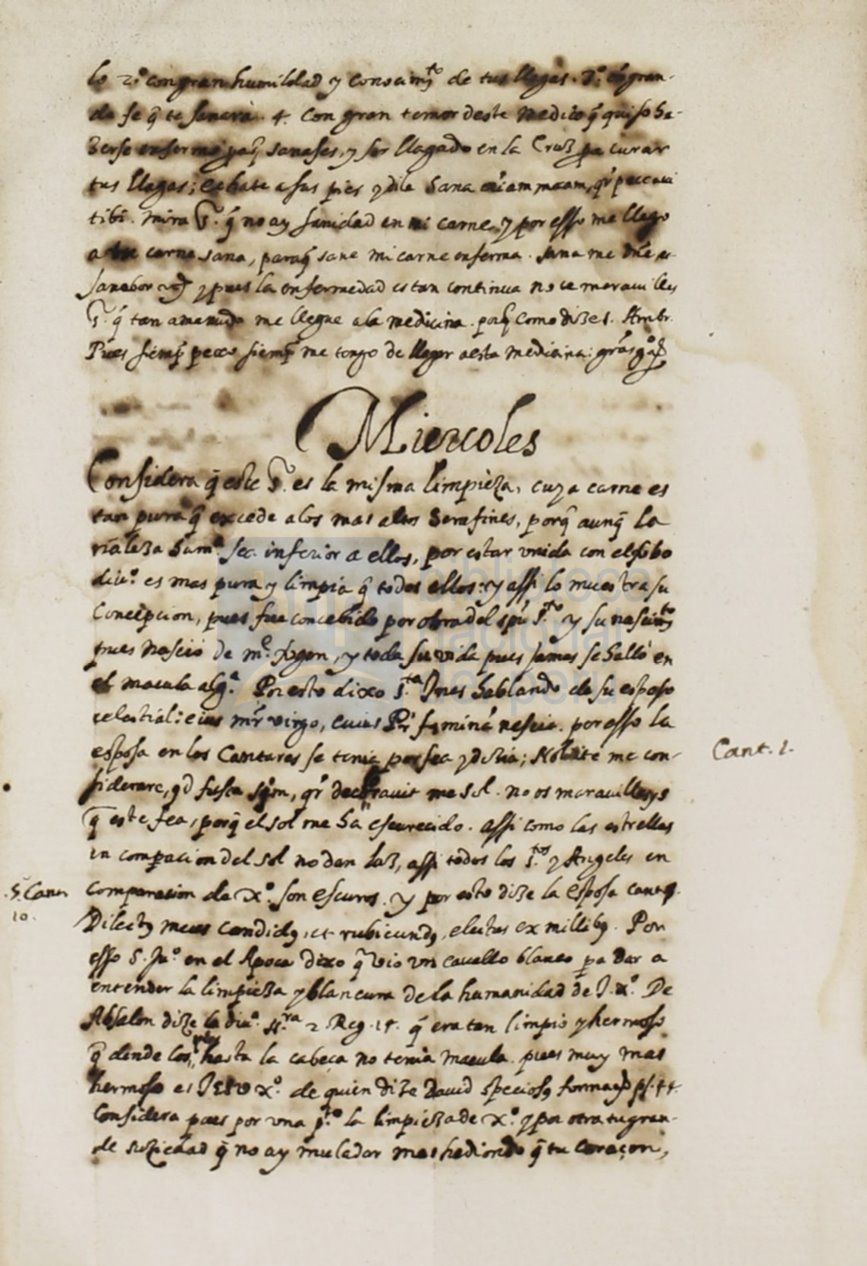 lo 2.º con gran humildad y conoscimto de tus llagas. 3.º con gran-
de fe q̃ te sanara. 4. Con gran temor deste Medico q̃ quiso ha-
verse enfermo paq̃ sanases, y ser llagado en la Cruz pa curar
tus llagas; echate a sus pies y dile Sana añiam meam, qr peccavi
tibi. mira S.r q̃ no ay sanidad en mi carne, y por esso me llego
a tu carne sana, paraq̃ sane mi carne enferma. Sana me Dñe et
sanabor y pues la enfermedad es tan continua no te maravilles
S.r q̃ tan amenudo me llegue ala medicina. porq̃ como dize S. Ambr.
Pues siemp̃ peco siemp̃ me tengo de llegar aesta medicina:
Miercoles
Considera q̃ este S.r es la misma limpieza, cuya carne es
tan pura q̃ excede alos mas altos Serafines, porq̃ aunq̃ la
ñaleza hum.ª sea inferior a ellos, por estar unida con el
div.º es mas pura y limpia q̃ todos ellos: y assi lo muestra su
Concepcion, pues fue concebido por obra del spũ S.to y su nascimto
pues nascio de m.e virgen, y toda su vida pues jamas se hallo en
el macula alg.ª Por esto dixo S.ta Ines hablando de su esposo
celestial: cuius mr̃ virgo, cuius Pr̃ feminã nescit. por esso la
esposa en los Cantares se tenia por fea y dezia; Nolite me con-
siderare, qd fusca sim, qr decoloravit me sol. no os maravilleys
q̃ este fea, porq̃ el sol me ha escurecido. assi como las estrellas
en compacion del sol no dan luz, assi todos los S.tos y Angeles en
comparacion de Xº. son escuros. y por esto dize la Esposa
Dilectus meus candidus, et rubicundus, electus ex millibus. Por
esso S. Juº en el Apoca dixo q̃ vio un cavallo blanco pa dar a
entender la limpieza y blancura de la humanidad de J. Xº. De
Absalon dize la divª. 2. Reg. 14. q̃ era tan limpio y hermoso
q̃ dende los pies hasta la cabeça no tenia macula. pues muy mas
hermoso es Jesu Xº. de quien dize David speciosus forma ps. 44
Considera pues por una p.te la limpieza de Xº. y por otra tu gran-
de suziedad q̃ no ay muladar mas hediondo q̃ tu coraçon,
Cant. 1.
5. Cant
10.